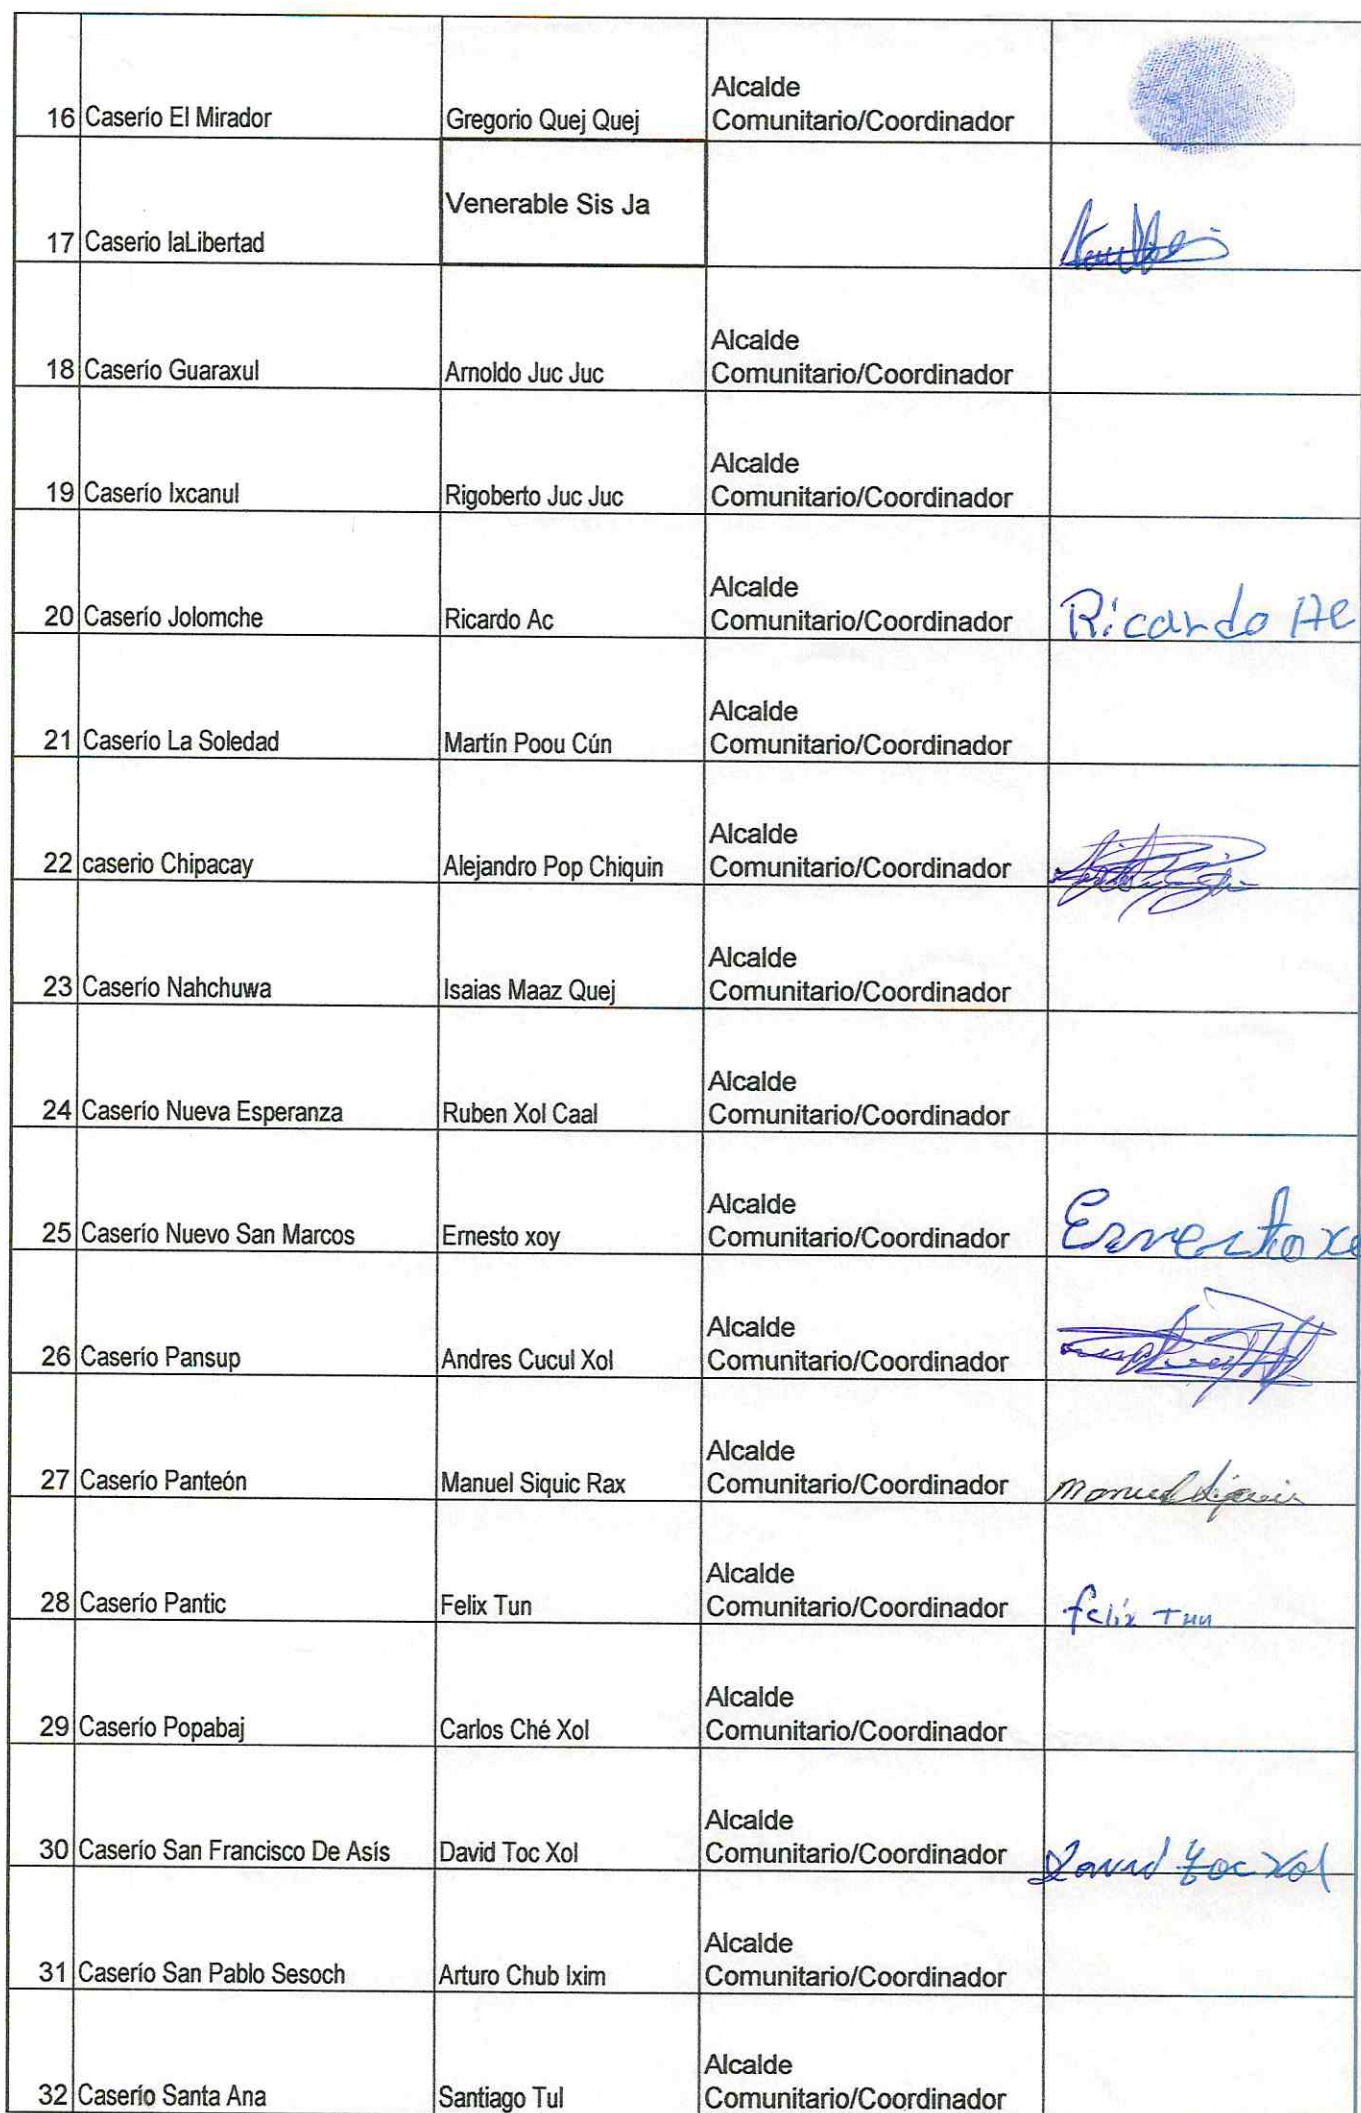 16 Caserío El Mirador Gregorio Quej Quej Alcalde
Comunitario/Coordinador
17 Caserio laLibertad Venerable Sis Ja
18 Caserío Guaraxul Arnoldo Juc Juc Alcalde
Comunitario/Coordinador
19 Caserío Ixcanul Rigoberto Juc Juc Alcalde
Comunitario/Coordinador
20 Caserío Jolomche Ricardo Ac Alcalde
Comunitario/Coordinador Ricardo Ac
21 Caserío La Soledad Martín Poou Cún Alcalde
Comunitario/Coordinador
22 caserio Chipacay Alejandro Pop Chiquin Alcalde
Comunitario/Coordinador
23 Caserío Nahchuwa Isaias Maaz Quej Alcalde
Comunitario/Coordinador
24 Caserío Nueva Esperanza Ruben Xol Caal Alcalde
Comunitario/Coordinador
25 Caserío Nuevo San Marcos Ernesto xoy Alcalde
Comunitario/Coordinador Ernesto xo
26 Caserío Pansup Andres Cucul Xol Alcalde
Comunitario/Coordinador
27 Caserío Panteón Manuel Siquic Rax Alcalde
Comunitario/Coordinador Manuel Siquic
28 Caserío Pantic Felix Tun Alcalde
Comunitario/Coordinador felix Tun
29 Caserío Popabaj Carlos Ché Xol Alcalde
Comunitario/Coordinador
30 Caserío San Francisco De Asís David Toc Xol Alcalde
Comunitario/Coordinador David Toc Xol
31 Caserío San Pablo Sesoch Arturo Chub Ixim Alcalde
Comunitario/Coordinador
32 Caserío Santa Ana Santiago Tul Alcalde
Comunitario/Coordinador